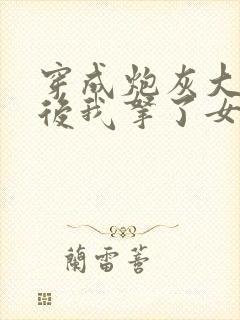 穿成炮灰大
後我拏了女
蘭雷蓍